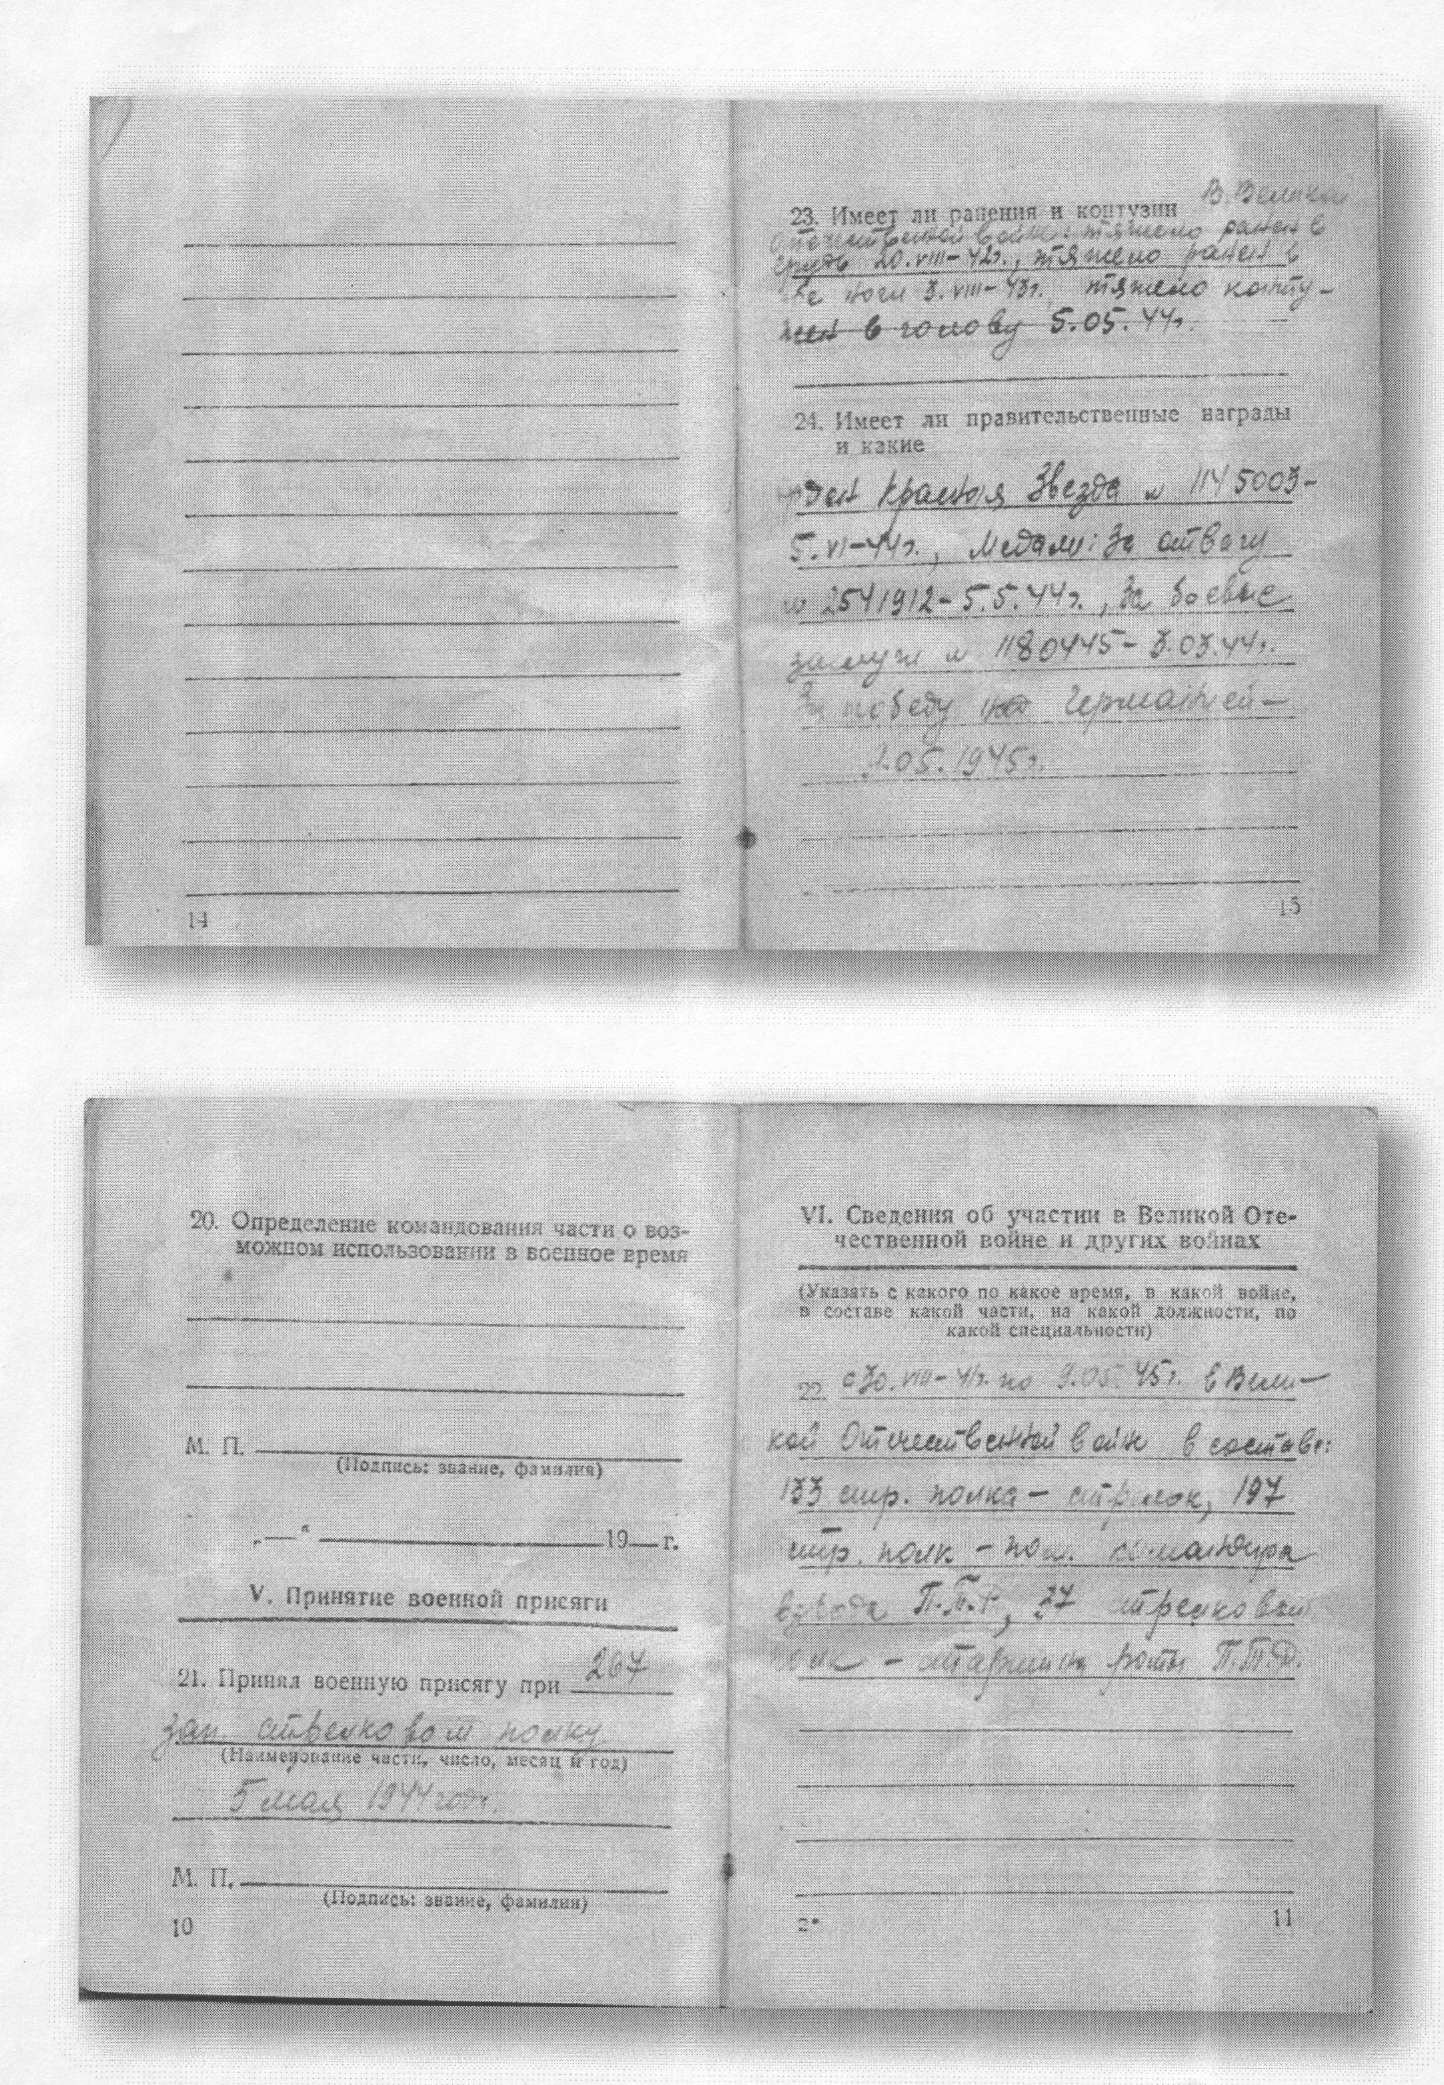 14
23. Имеет ли ранения и контузии В Велика
Отечественной войне: тяжело ранен в
грудь 20.VIII-42г., тяжело ранен в
ноги 3.VIII-43г. тяжело конту-
жен в голову 5.05.44г.
24. Имеет ли правительственные награды
и какие
Красная Звезда № 1145003-
5.VI-44г., Медали: За отвагу
№ 2541912-5.5.44г., За боевые
заслуги № 1180445-3.03.44г.
За победу над Германией-
9.05.1945г.
15
20. Определение командования части о воз-
можном использовании в военное время
М. П.
(Подпись: звание, фамилия)
„— “ 19— г.
V. Принятие военной присяги
21. Принял военную присягу при 267
зап. стрелковом полку
(Наименование части, число, месяц и год)
5 мая 1944 года.
М. П.
(Подпись: звание, фамилия)
10
VI. Сведения об участии в Великой Оте-
чественной войне и других войнах
(Указать с какого по какое время, в какой войне,
в составе какой части, на какой должности, по
какой специальности)
22. с 30.VIII-41г. по 9.05.45г. в Вели-
кой Отечественной войне в составе:
133 стр. полка - стрелок, 197
стр. полк - пом. командира
взвода П.Т.Р, 27 стрелковый
полк - старшина роты П.Т.Р.
2*
11